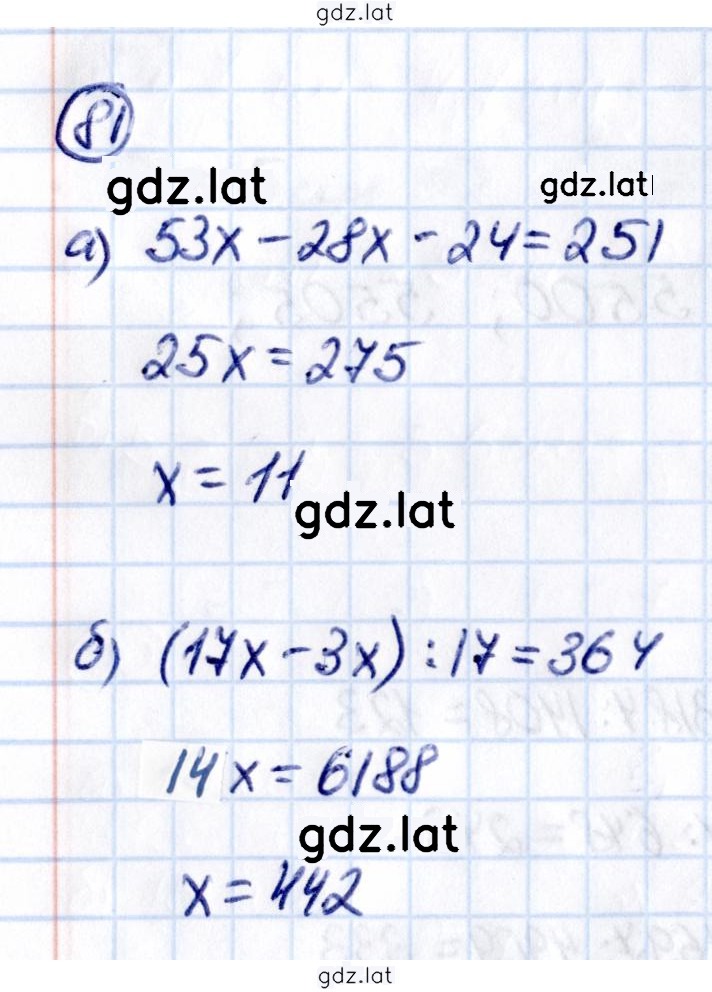 gdz.lat
81
gdz.lat gdz.lat
а) 53x - 28x - 24 = 251
25x = 275
x = 11
gdz.lat
б) (17x - 3x) : 17 = 364
14x = 6188
gdz.lat
x = 442
gdz.lat